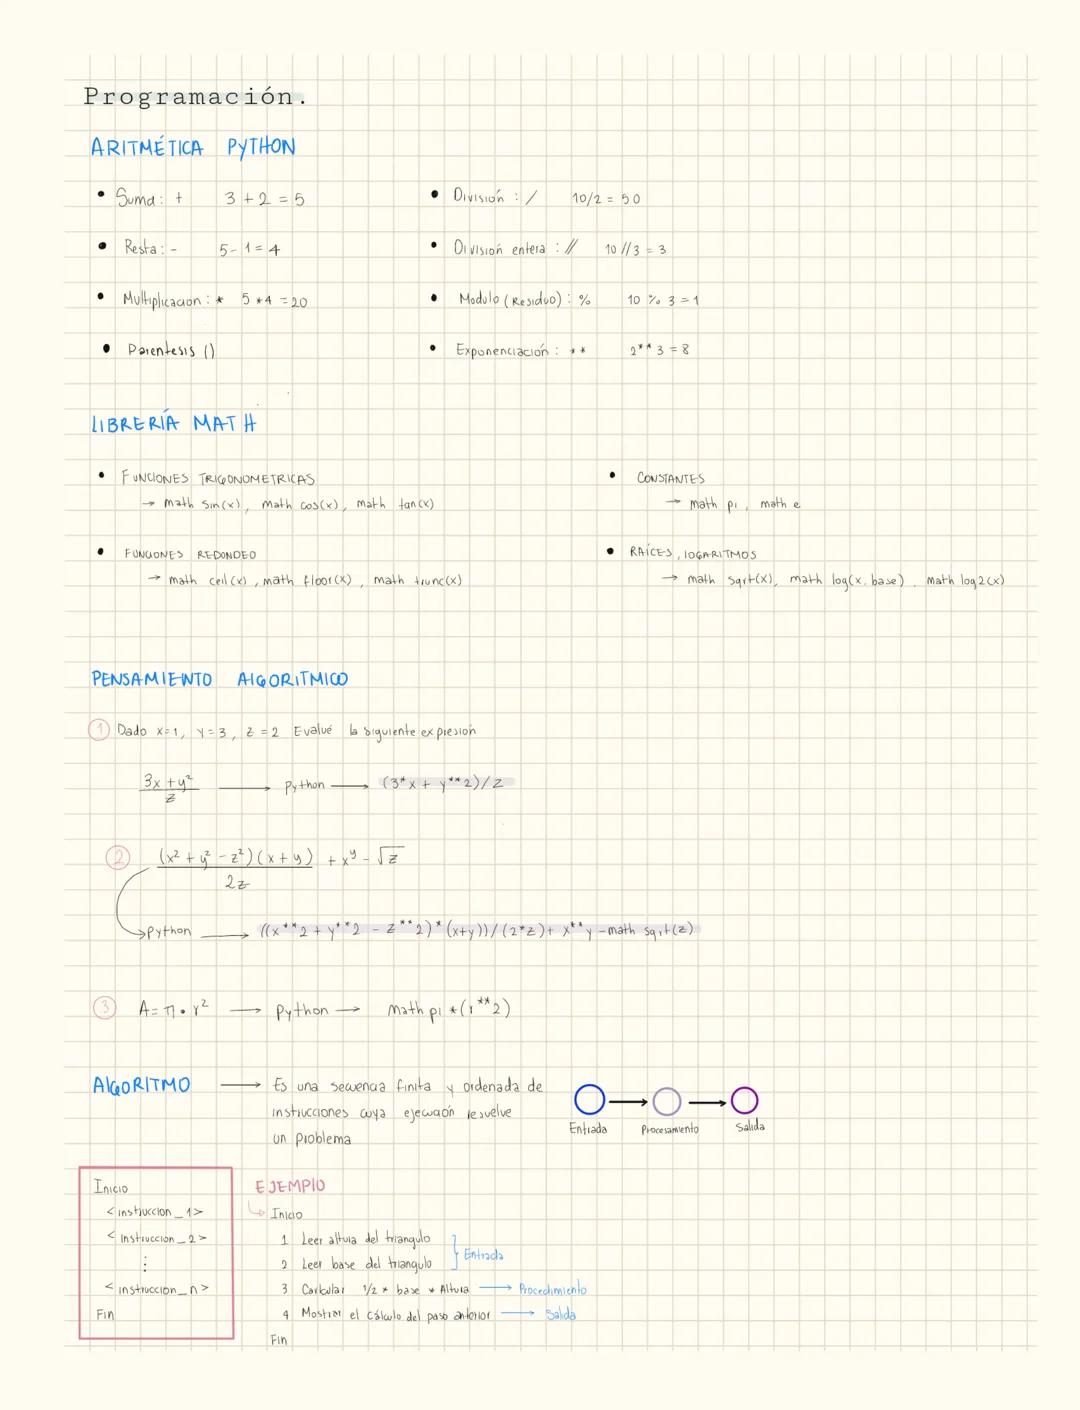 Programación.
ARITMÉTICA PYTHON
• Suma: + 3 + 2 = 5
• División : / 10/2 = 5.0
• Resta: - 5 - 1 = 4
• División entera : // 10 // 3 = 3
• Multiplicacion : * 5 * 4 = 20
• Modulo (Residuo) : % 10 % 3 = 1
• Parentesis ()
• Exponenciación : ** 2** 3 = 8
LIBRERÍA MATH
• FUNCIONES TRIGONOMETRICAS
→ math.sin(x), math.cos(x), math.tan(x)
• CONSTANTES
→ math.pi, math.e
• FUNCIONES REDONDEO
→ math.ceil(x), math.floor(x), math.trunc(x)
• RAÍCES, LOGARITMOS
→ math.sqrt(x), math.log(x, base), math.log2(x)
PENSAMIENTO ALGORITMICO
1 Dado x=1, y=3, z=2 Evalué la siguiente expresión
(3x + y²)/z → Python → (3*x + y**2)/z
2 ((x² + y² - z²)(x + y))/2z + x^y - √z
→ Python → ((x**2 + y**2 - z**2)*(x+y))/(2*z) + x**y - math.sqrt(z)
3 A = π • r² → Python → math.pi *(r**2)
ALGORITMO → Es una secuencia finita y ordenada de
instrucciones cuya ejecución resuelve
un problema
Entrada → Procesamiento → Salida
Inicio
<instruccion_1>
<instruccion_2>
⋮
<instruccion_n>
Fin
EJEMPLO
↳ Inicio
1 Leer altura del triangulo
2 Leer base del triangulo } Entrada
3 Carlcular 1/2 * base * Altura → Procedimiento
4 Mostrar el cálculo del paso anterior → Salida
Fin